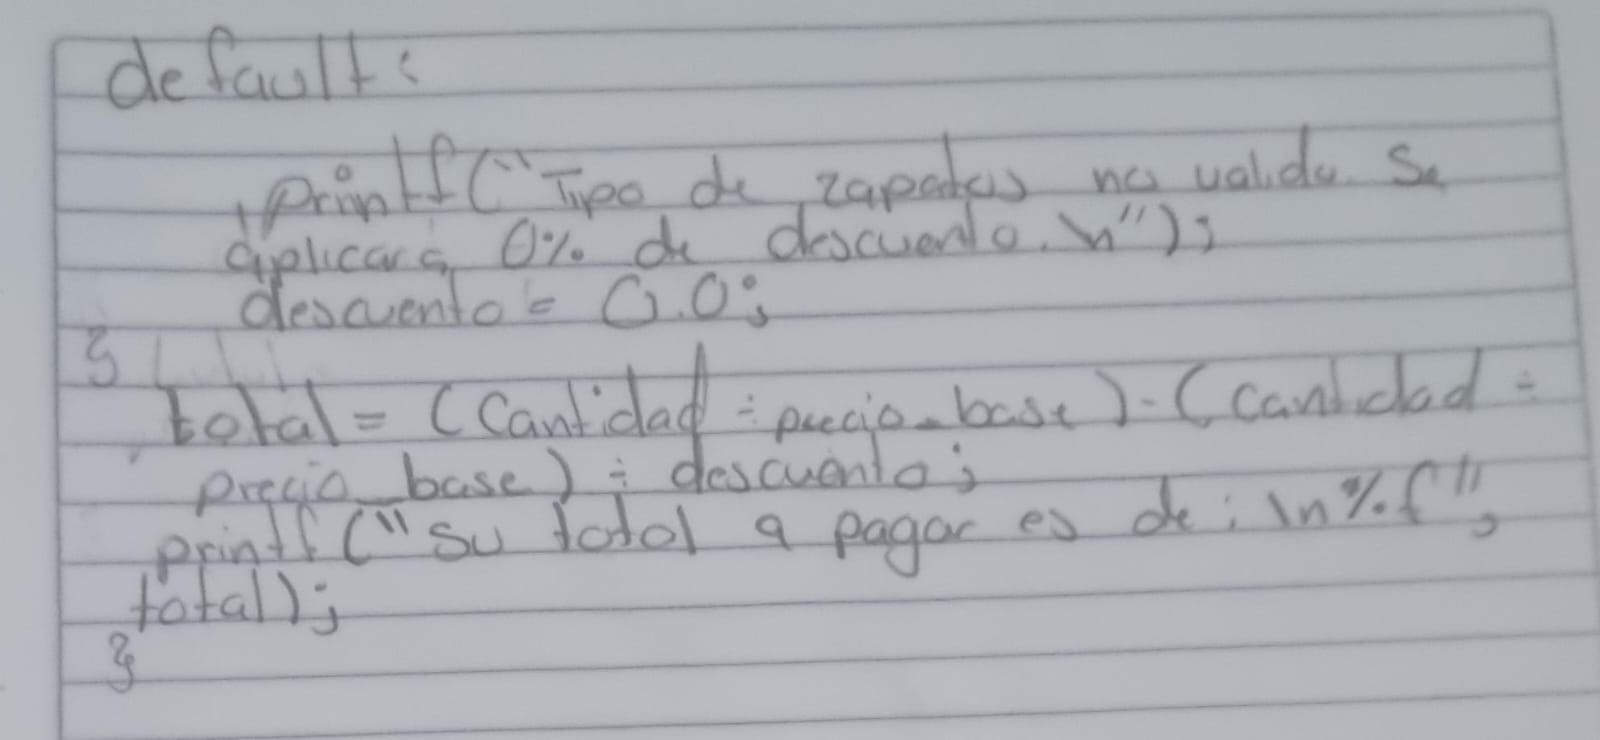 default:
printf("Tipo de zapatos no valido. Se
aplicara 0% de descuento.\n");
descuento = 0.0;
}
total = (Cantidad ÷ precio_base) - (Cantidad ÷
precio_base) ÷ descuento;
printf("su total a pagar es de: \n%f",
total);
}